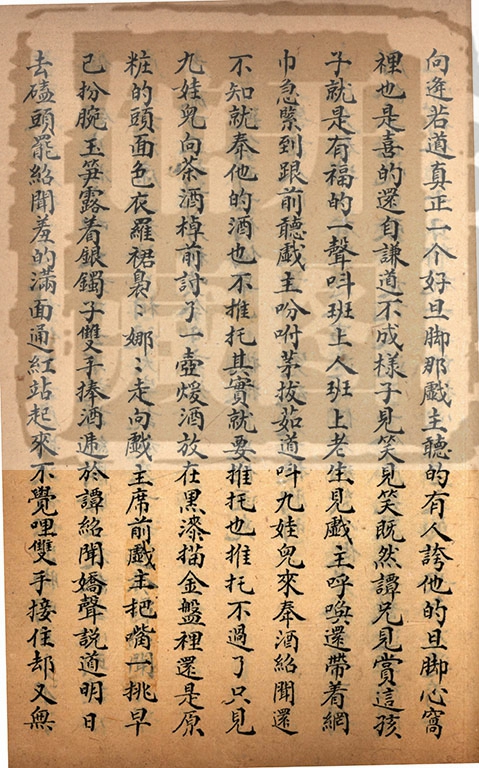 向逢若道真正一个好旦脚那戲主聽的有人誇他的旦脚心窩
裡也是喜的還自謙道不成樣子見笑見笑既然譚兄見賞這孩
子就是有福的一聲呌班上人班上老生見戲主呼喚還帶着網
巾急縈到跟前聽戲主吩咐茅拔茹道呌九娃兒來奉酒紹聞還
不知就奉他的酒也不推托其實就要推托也推托不過了只見
九娃兒向茶酒棹前討了一壺煖酒放在黑漆描金盤裡還是原
粧的頭面色衣羅裙裊〻娜〻走向戲主席前戲主把嘴一挑早
已扮腕玉笋露着銀鐲子雙手捧酒逓於譚紹聞嬌聲説道明日
去磕頭罷紹聞羞的滿面通紅站起來不覺哩雙手接住却又無